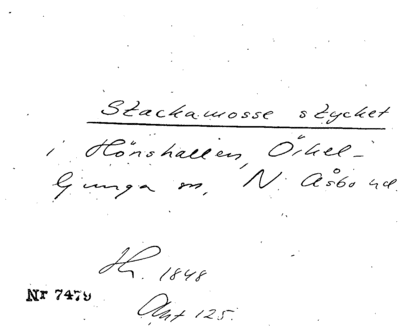 Stackamosse stycket
i Hönshallen, Örkel-
ljunga sn, N. Åsbo hd.
Hr. 1848
Nr 7479
Akt 125.